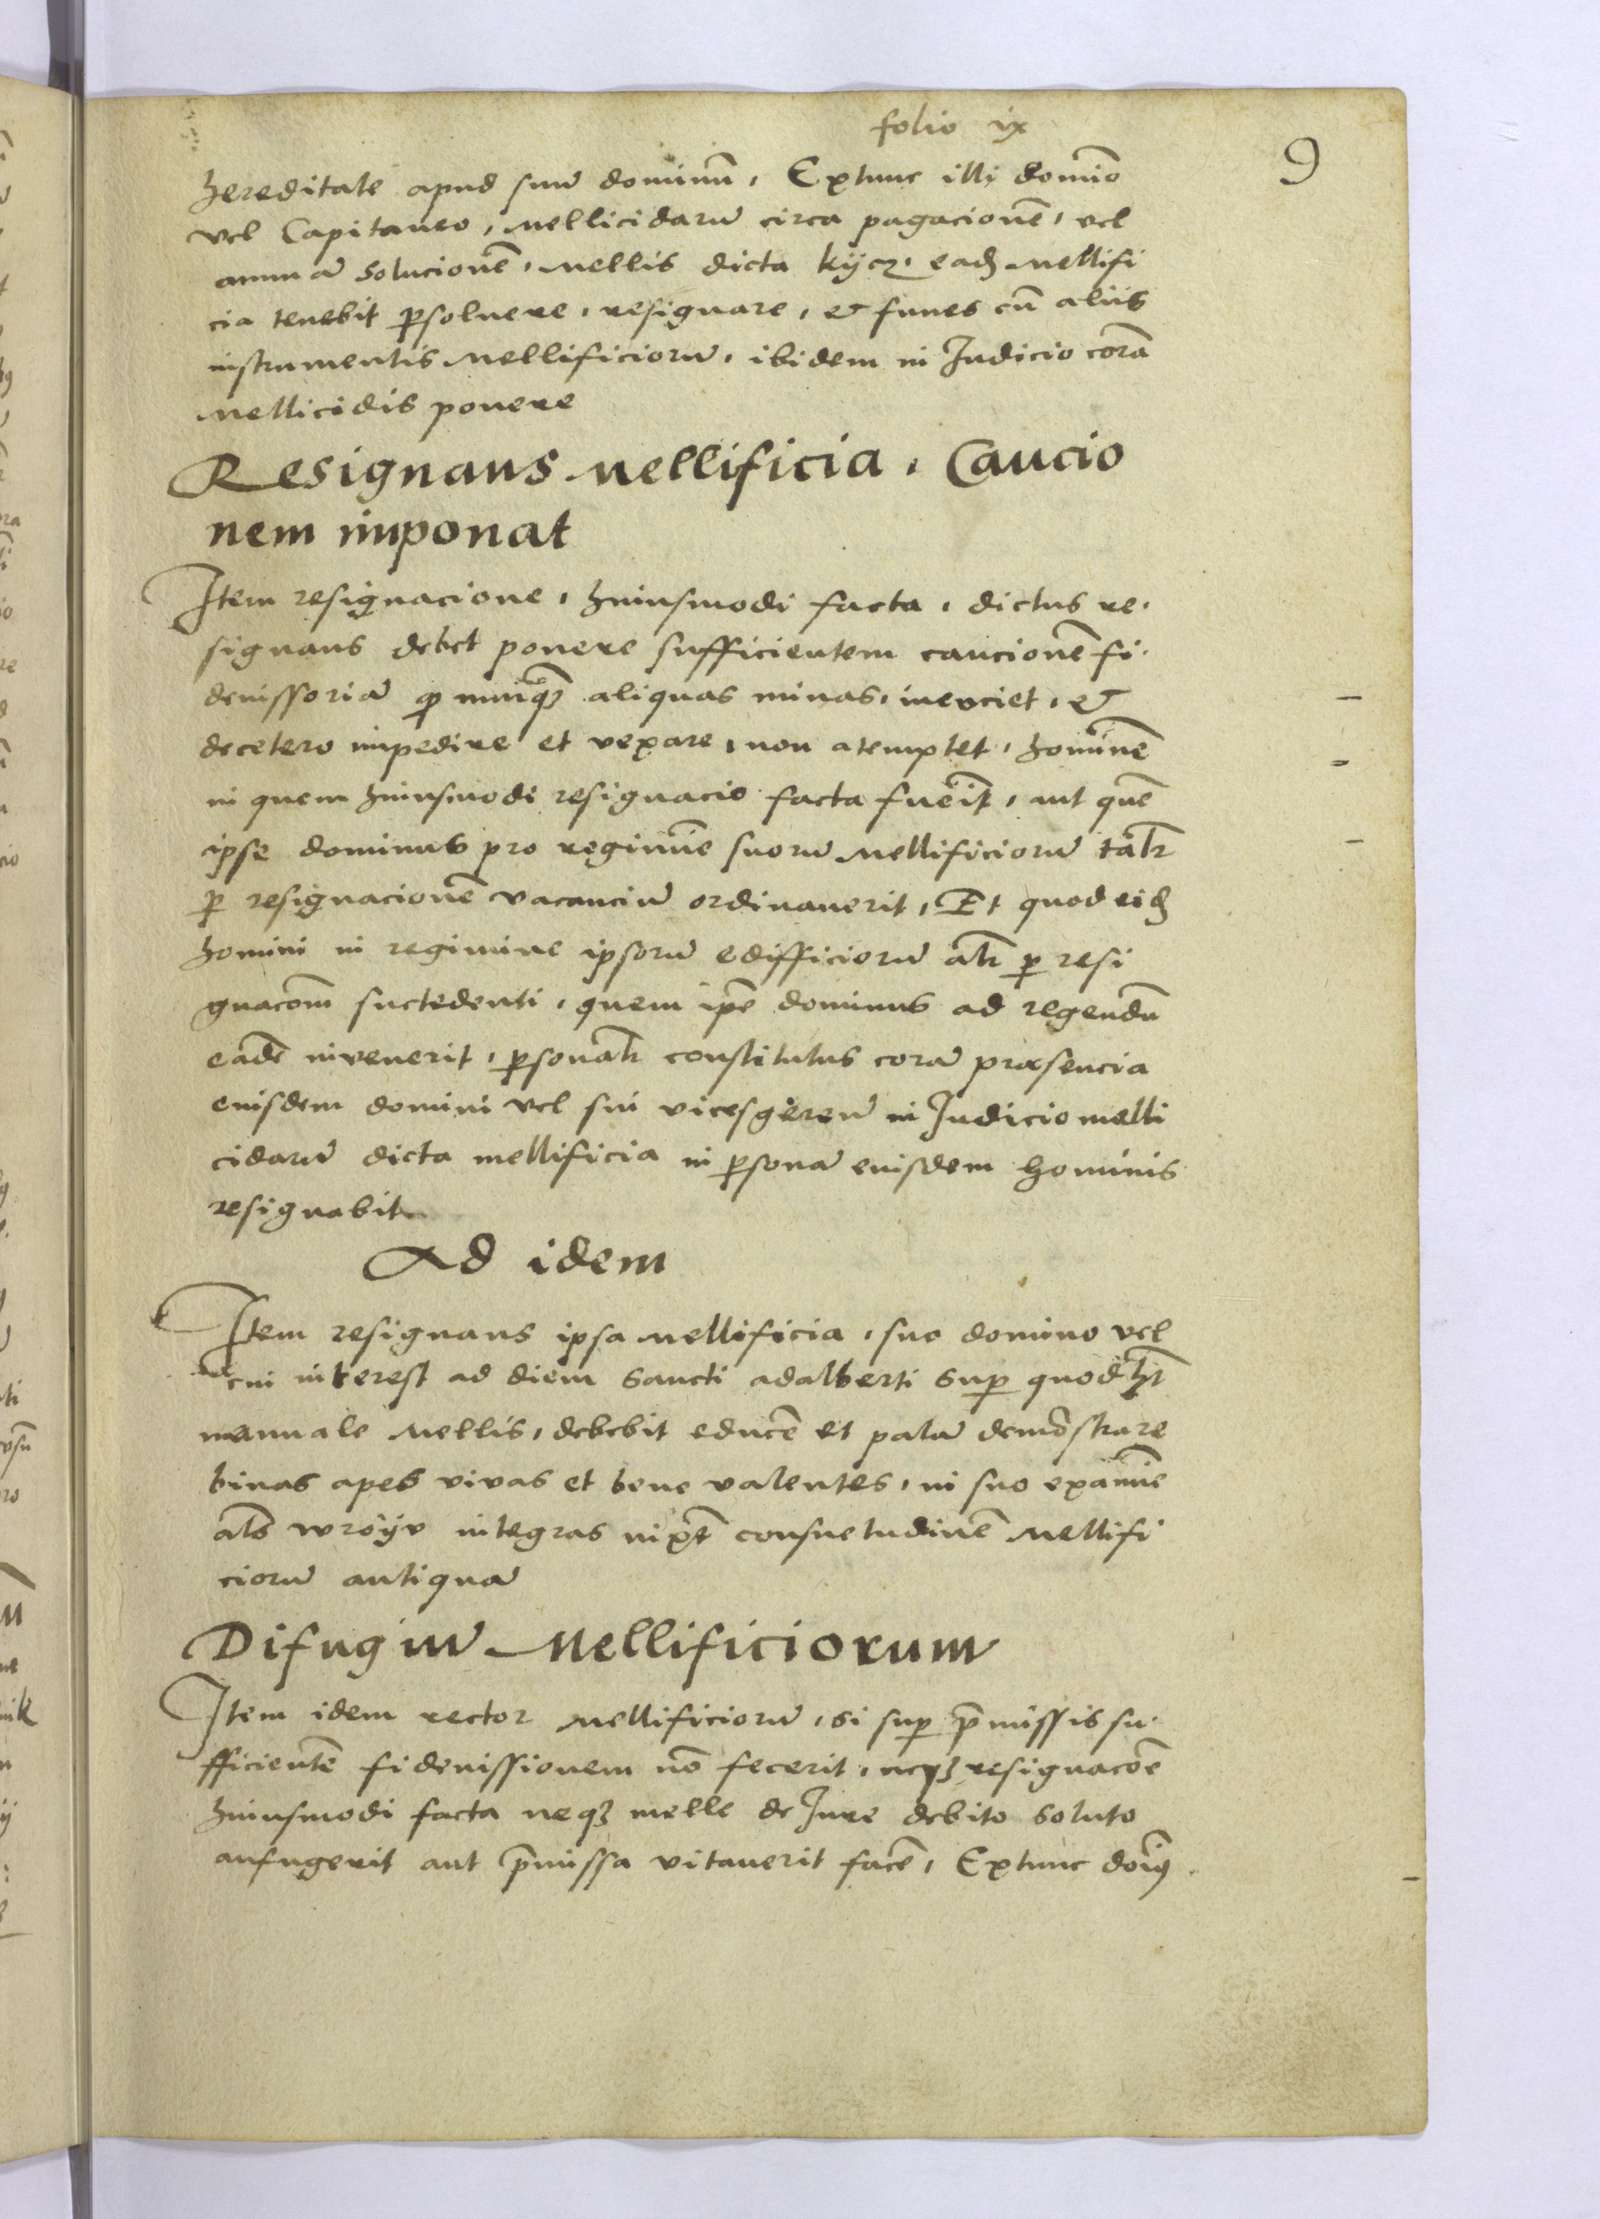 folio ix
9
hereditate apud suũ dominũ, Extunc illi domĩo
vel Capitaneo, Mellicidarũ circa pagacionẽ, vel
annuã solucionẽ, Mellis dicta kÿcz, eadẽ Mellifi
cia tenebit ꝑsoluere, resignare, & funes cũ aliis
instrumentis Mellificiorũ, ibidem in Iudicio corã
Mellicidis ponere
Resignans Mellificia, Caucio
nem imponat
Item resignacione, huiusmodi facta, dictus re
signans debet ponere sufficientem caucionẽ fi
deiussoriã ꝙ nunqꝫ aliquas minas, inerciet, &
decetero impedire et vexare, non atemptet, hominẽ
in quem huiusmodi resignacio facta fuerit, aut quẽ
ipse dominus pro regimĩe suorũ Mellificiorũ tãlr
ꝑ resignacionẽ vacanciũ ordinauerit, Et quod eidẽ
homini in regimine ipsorũ edifficiorũ alr ꝑ resi
gnacom̃ suctedenti, quem ip̃e dominus ad regendũ
eadẽ invenerit, ꝑsonalr constitutus corã præsencia
eiusdem domini vel sui vicesgerentẽ in Iudicio melli
cidarũ dicta mellificia in ꝑsonã eiusdem hominis
resignabit
Ad idem
Item resignans ipsa Mellificia, suo domino vel
cui interest ad diem sancti adalberti suꝑ quodlꝫt
manuale Mellis, debebit educẽ et palã demõstrare
binas apes vivas et bene valentes, in suo examĩe
als̃ wroÿv integras iuxt̃ consuetudinẽ Mellifi
ciorũ antiquã
Difugiũ Mellificiorum
Item idem rector Mellificiorũ, si suꝑ p̃missis su
fficientẽ fideiussionem nõ fecerit, neqꝫ resignacõe
huiusmodi facta neqꝫ melle de Iure debito soluto
aufugerit aut p̃missa vitauerit facẽ, Extunc doĩꝯ